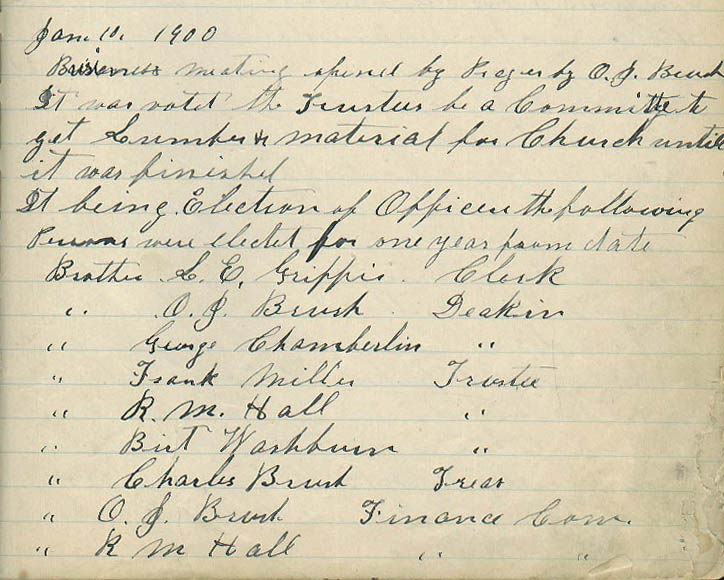 Jan. 10. 1900
Business meeting opened by Prayer by O. J. Brush
It was voted the Trustees be a Committe to
get Lumber & material for Church until
it was finished
It being Election of Officers the following
Persons were elected for one year from date
Brother L. E. Griffis. Clerk
" O. J. Brush. Deakin
" George Chamberlin "
" Frank Miller Trustee
" R. M. Hall "
" Birt Washburn "
" Charles Brush Treas
" O. J. Brush Finance Com.
" R M Hall " "